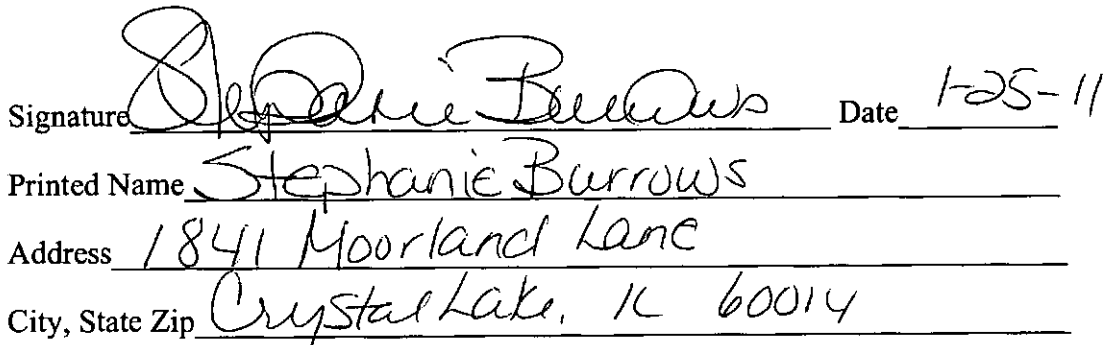 Signature Stephanie Burrows Date 1-25-11
Printed Name Stephanie Burrows
Address 1841 Moorland Lane
City, State Zip Crystal Lake, IL 60014